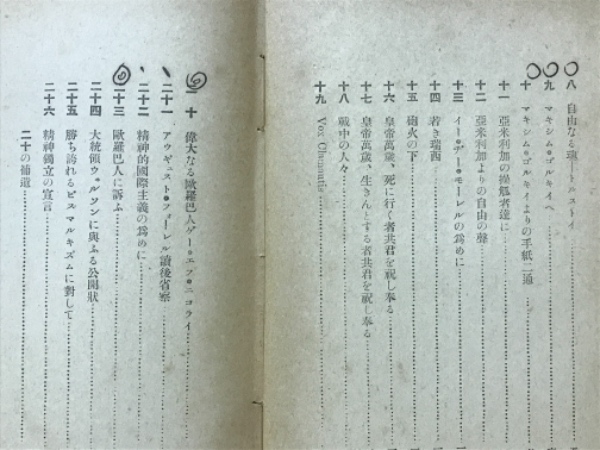 八 自由なる聲――トルストイ
九 マキシム・ゴルキイへ
十 マキシム・ゴルキイよりの手紙二通
十一 亞米利加の操觚者達に
十二 亞米利加よりの自由の聲
十三 イー・デー・モーレルの爲めに
十四 若き瑞西
十五 砲火の下
十六 皇帝萬歳、死に行く者共君を祝し奉る
十七 皇帝萬歳、生きんとする者共君を祝し奉る
十八 戰中の人々
十九 Vox Clamantis
二十 偉大なる歐羅巴人ゲー・エフ・ニコライ
二十一 アウギュスト・フォーレル讀後省察
二十二 精神的國際主義の爲めに
二十三 歐羅巴人に訴ふ
二十四 大統領ウィルソンに與ふる公開狀
二十五 勝ち誇れるビスマルキズムに對して
二十六 精神獨立の宣言
二十の補遺